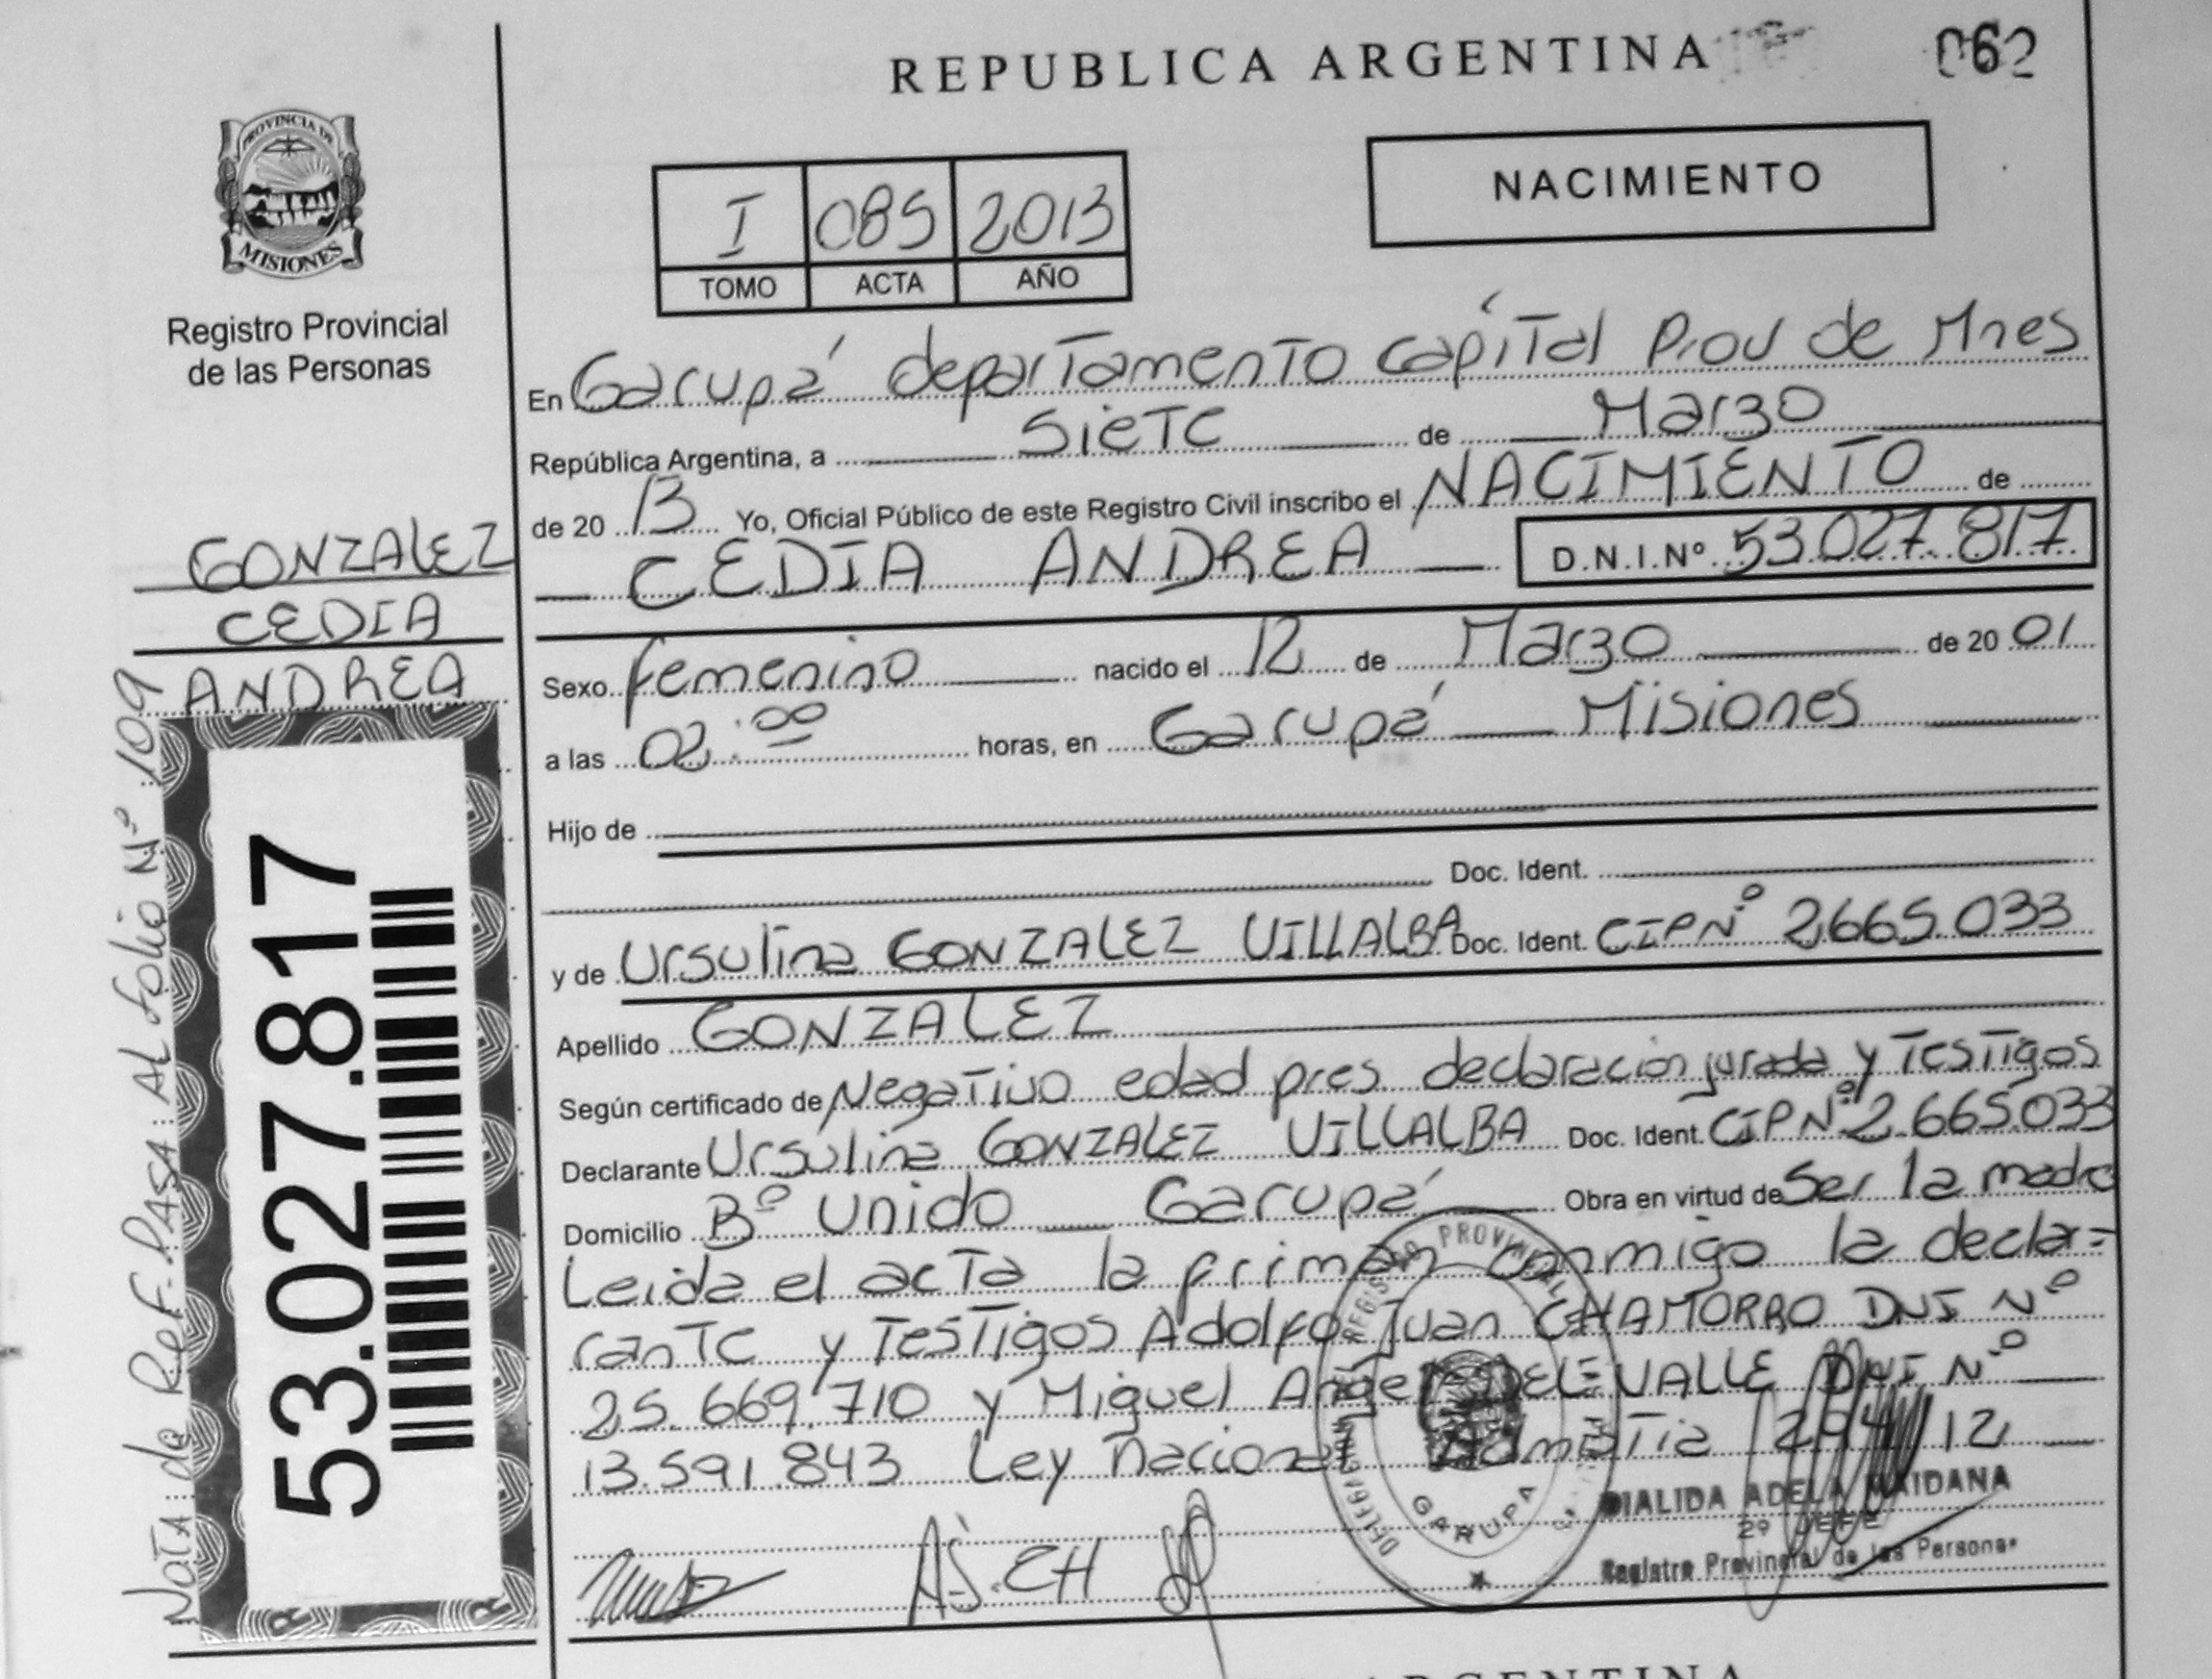 REPUBLICA ARGENTINA
062
PROVINCIA DE
MISIONES
Registro Provincial
de las Personas
I 085 2013
TOMO ACTA AÑO
NACIMIENTO
En Garupá departamento capital Prov de Mnes
República Argentina, a siete de Marzo
de 20 13 Yo, Oficial Público de este Registro Civil inscribo el NACIMIENTO de
CEDIA ANDREA D.N.I.Nº 53.027.817
GONZALEZ
CEDIA
ANDREA
Sexo femenino nacido el 12 de Marzo de 20 01
a las 02:00 horas, en Garupá Misiones
Hijo de
Doc. Ident.
y de Ursulina GONZALEZ VILLALBA Doc. Ident. CIPNº 2665.033
Apellido GONZALEZ
Según certificado de Negativo edad pres. declaración jurada y testigos
Declarante Ursulina GONZALEZ VILLALBA Doc. Ident. CIPNº 2.665.033
Domicilio Bº Unido Garupá Obra en virtud de Ser la madre
Leida el acta la firman conmigo la decla=
rante y testigos Adolfo Juan CHAMORRO DNI Nº
25.669.710 y Miguel Angel DELEVALLE DNI Nº
13.591.843 Ley nacional Admistia 294/12
A.J.CH
DIALIDA ADELA MAIDANA
2º JEFE
Registro Provincial de las Personas
REGISTRO PROVINCIAL
DELEGACION
GARUPA
53.027.817
Nota: de Ref. PASA: AL folio Nº 109
ARGENTINA